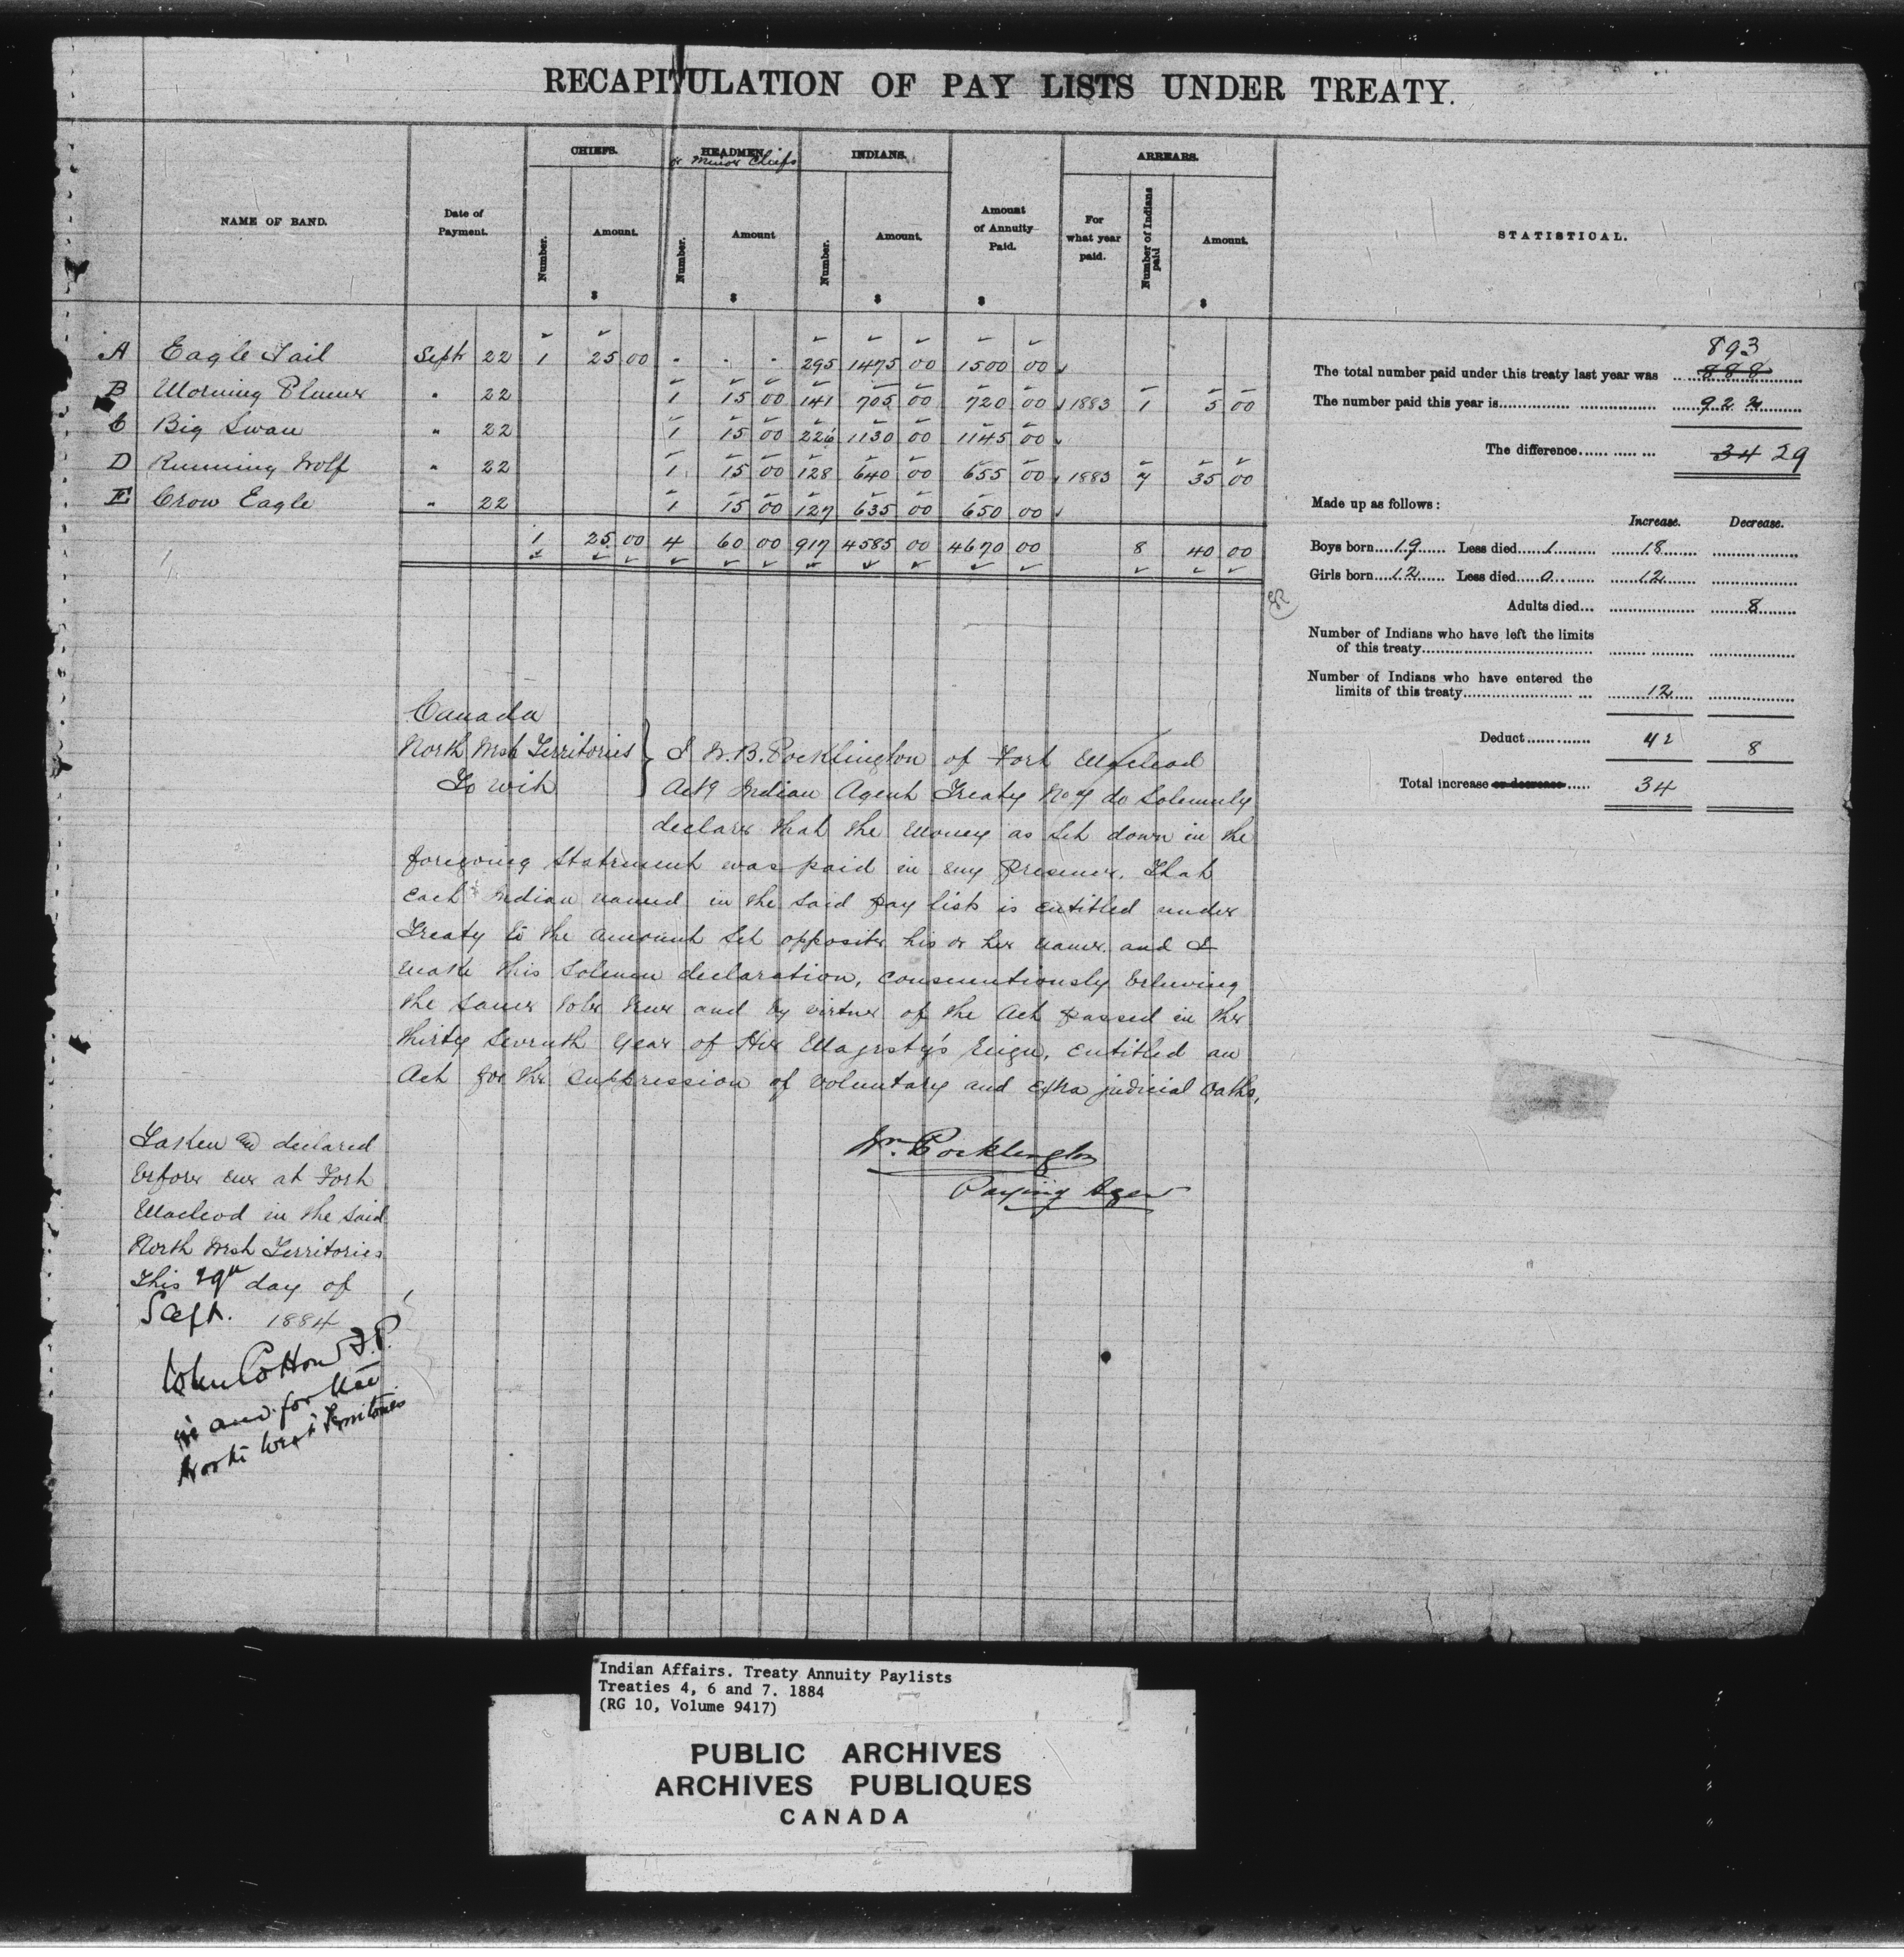 RECAPITULATION OF PAY LISTS UNDER TREATY.
CHIEFS. HEADMEN or Minor Chiefs INDIANS. ARREARS.
NAME OF BAND. Date of Payment. Number. Amount. $ Number. Amount $ Number. Amount. $ Amount of Annuity Paid. $ For what year paid. Number of Indians paid Amount. $ STATISTICAL.
A Eagle Tail Sept 22 1 25 00 295 1475 00 1500 00
B Morning Plume " 22 1 15 00 141 705 00 720 00 1883 1 5 00
C Big Swan " 22 1 15 00 226 1130 00 1145 00
D Running Wolf " 22 1 15 00 128 640 00 655 00 1883 7 35 00
E Crow Eagle " 22 1 15 00 127 635 00 650 00
1 25 00 4 60 00 917 4585 00 4670 00 8 40 00
893
The total number paid under this treaty last year was 888
The number paid this year is 922
The difference 34 29
Made up as follows:
Increase. Decrease.
Boys born 19 Less died 1 18
Girls born 12 Less died 0 12
Adults died 8
Number of Indians who have left the limits
of this treaty
Number of Indians who have entered the
limits of this treaty 12
Deduct 42 8
Total increase or decrease 34
Canada
North West Territories } I W.B. Pocklington of Fort Macleod
To wit Actg Indian Agent Treaty No 7 do Solemnly
declare that the Money as set down in the
foregoing Statement was paid in my presence. That
each Indian named in the said pay lists is entitled under
Treaty to the amount set opposite his or her name and I
make this solemn declaration, conscientiously believing
the same to be true and by virtue of the Act passed in the
thirty seventh year of Her Majesty's Reign, entitled an
Act for the suppression of voluntary and extra judicial oaths,
Wm. Pocklington
Paying Agent
Taken and declared
before me at Fort
Macleod in the said
North West Territories
This 29th day of
Sept. 1884
John Cotton J.P.
in and for the
North West Territories
Indian Affairs. Treaty Annuity Paylists
Treaties 4, 6 and 7. 1884
(RG 10, Volume 9417)
PUBLIC ARCHIVES
ARCHIVES PUBLIQUES
CANADA